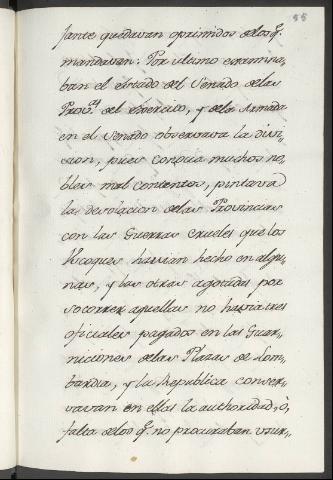 55
jante quedavan oprimidos de los q.
mandavan: Por ultimo examina-
ban el estado del Senado de las
Prov.s del exercito, y de la Armada
en el Senado observava la divi-
cion, pues conocia muchos no-
bles mal contentos, pintava
la desolacion de las Provincias
con las Guerras crueles que los
Vscoques havian hecho en algu-
nas, y las otras agotadas por
socorrer aquellas no havia tres
oficiales pagados en las Guar-
niciones de las Plazas de Lom-
bardia, y la Republica conser-
vavan en ellas la authoridad, ò,
falta de los q. no procuraban usur-